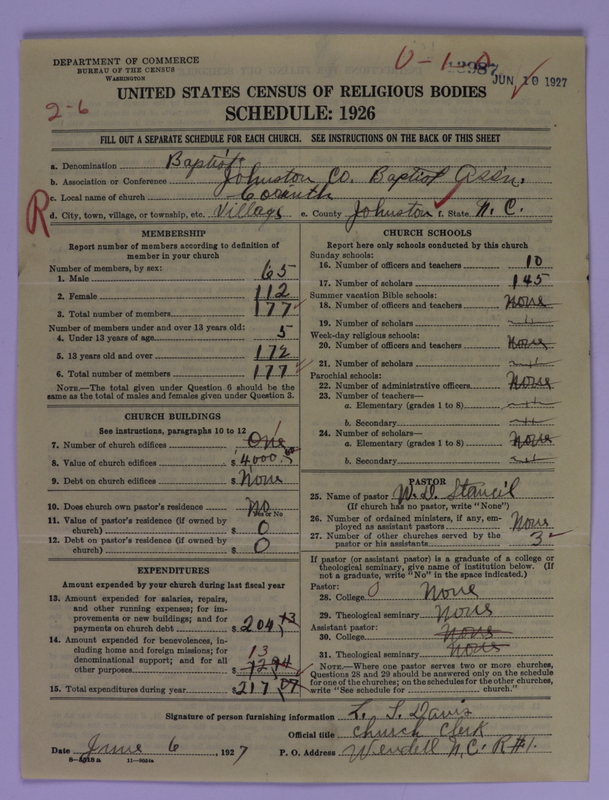 DEPARTMENT OF COMMERCE
BUREAU OF THE CENSUS
WASHINGTON
JUN 10 1927
2-6
UNITED STATES CENSUS OF RELIGIOUS BODIES
SCHEDULE: 1926
FILL OUT A SEPARATE SCHEDULE FOR EACH CHURCH. SEE INSTRUCTIONS ON THE BACK OF THIS SHEET
R
a. Denomination Baptist
b. Association or Conference Johnston Co. Baptist Assn.
c. Local name of church Corinth
d. City, town, village, or township, etc. Village e. County Johnston f. State N. C.
MEMBERSHIP
Report number of members according to definition of
member in your church
Number of members, by sex:
1. Male 65
2. Female 112
3. Total number of members 177
Number of members under and over 13 years old:
4. Under 13 years of age 5
5. 13 years old and over 172
6. Total number of members 177
NOTE.—The total given under Question 6 should be the
same as the total of males and females given under Question 3.
CHURCH BUILDINGS
See instructions, paragraphs 10 to 12
7. Number of church edifices One
8. Value of church edifices $ 4000.00
9. Debt on church edifices $ None
10. Does church own pastor's residence? No
Yes or No
11. Value of pastor's residence (if owned by
church) $ 0
12. Debt on pastor's residence (if owned by
church) $ 0
EXPENDITURES
Amount expended by your church during last fiscal year
13. Amount expended for salaries, repairs,
and other running expenses; for im-
provements or new buildings; and for
payments on church debt $ 204
14. Amount expended for benevolences, in-
cluding home and foreign missions; for
denominational support; and for all
other purposes $ 13
15. Total expenditures during year $ 217
CHURCH SCHOOLS
Report here only schools conducted by this church
Sunday schools:
16. Number of officers and teachers 10
17. Number of scholars 145
Summer vacation Bible schools:
18. Number of officers and teachers None
19. Number of scholars
Week-day religious schools:
20. Number of officers and teachers None
21. Number of scholars
Parochial schools:
22. Number of administrative officers None
23. Number of teachers—
a. Elementary (grades 1 to 8)
b. Secondary
24. Number of scholars—
a. Elementary (grades 1 to 8) None
b. Secondary
PASTOR
25. Name of pastor W. D. Stancil
(If church has no pastor, write "None")
26. Number of ordained ministers, if any, em-
ployed as assistant pastors None
27. Number of other churches served by the
pastor or his assistants 3
If pastor (or assistant pastor) is a graduate of a college or
theological seminary, give name of institution below. (If
not a graduate, write "No" in the space indicated.)
Pastor:
28. College None
29. Theological seminary None
Assistant pastor:
30. College None
31. Theological seminary None
NOTE.—Where one pastor serves two or more churches,
Questions 28 and 29 should be answered only on the schedule
for one of the churches; on the schedules for the other churches,
write "See schedule for church."
Signature of person furnishing information L. T. Davis
Official title Church Clerk
Date June 6, 1927 P. O. Address Wendell N.C. R#1.
11—9054a